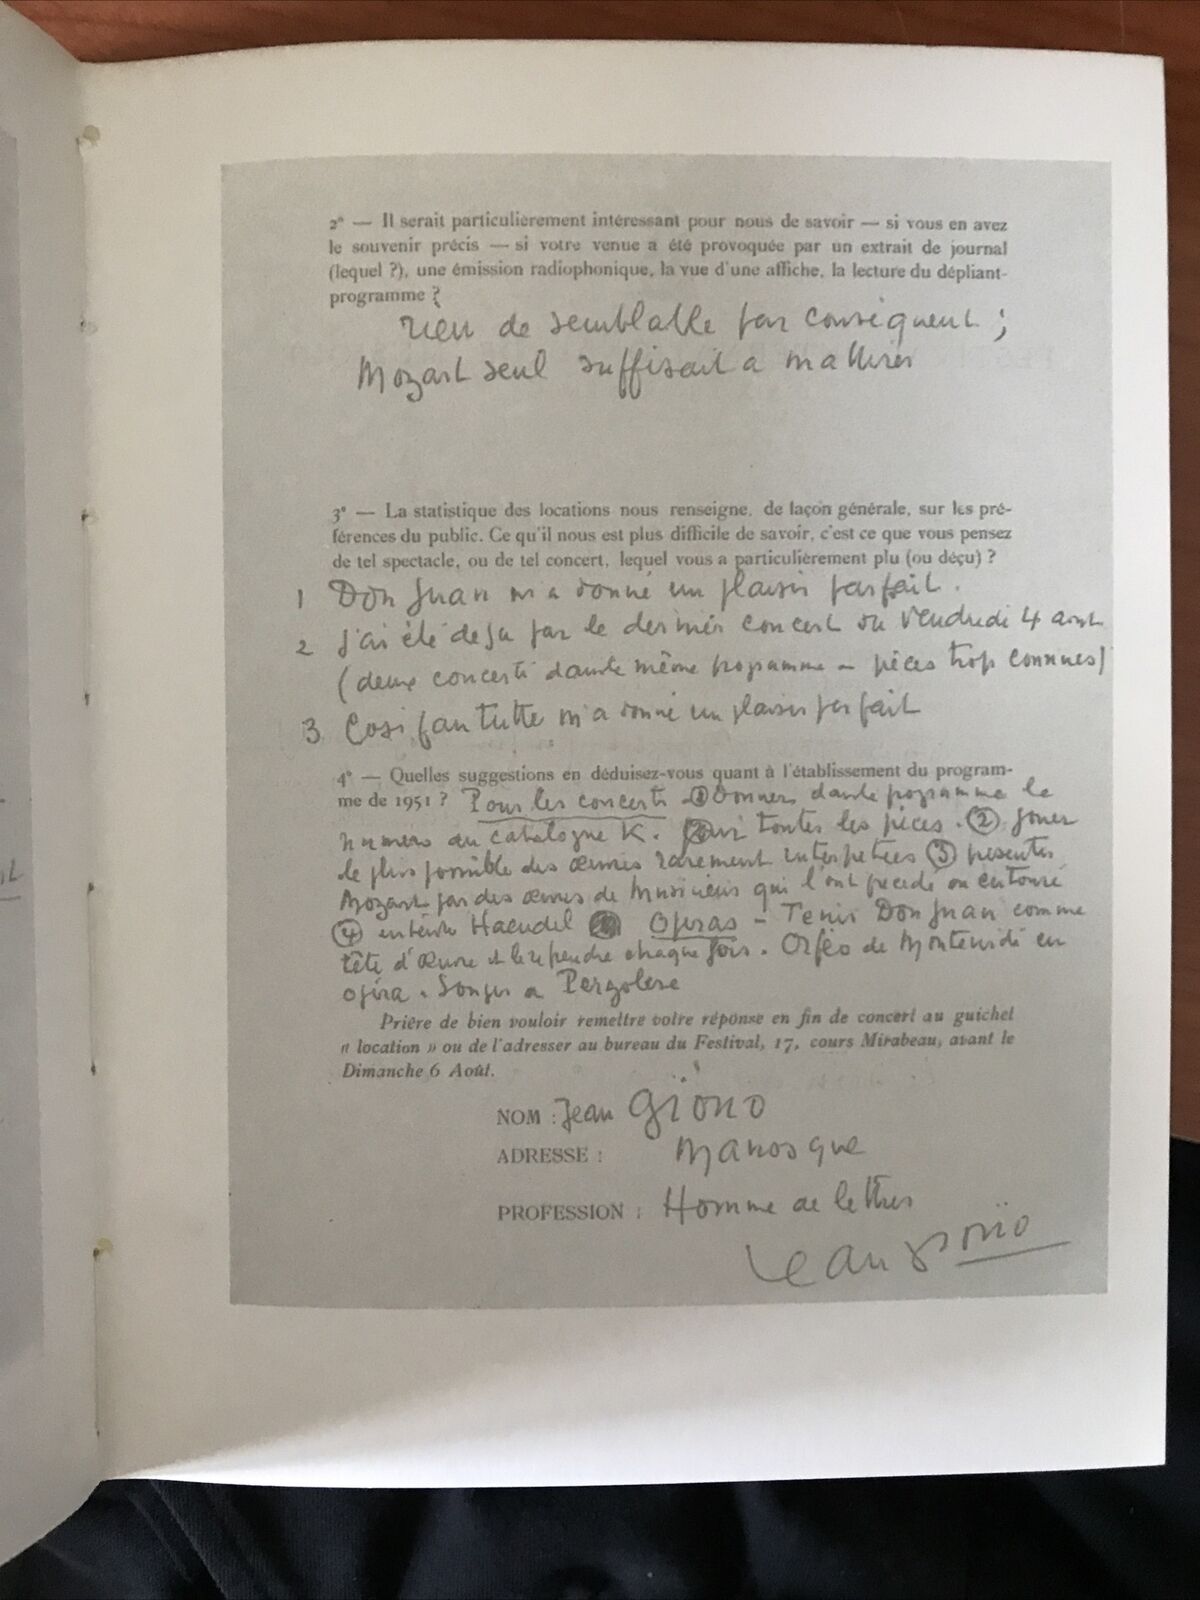 2° — Il serait particulièrement intéressant pour nous de savoir — si vous en avez
le souvenir précis — si votre venue a été provoquée par un extrait de journal
(lequel ?), une émission radiophonique, la vue d'une affiche, la lecture du dépliant-
programme ?
rien de semblable par conséquent ;
Mozart seul suffisait a m'attirer
3° — La statistique des locations nous renseigne, de façon générale, sur les pré-
férences du public. Ce qu'il nous est plus difficile de savoir, c'est ce que vous pensez
de tel spectacle, ou de tel concert, lequel vous a particulièrement plu (ou déçu) ?
1 Don Juan m'a donné un plaisir parfait.
2 J'ai été déçu par le dernier concert du vendredi 4 aout
(deux concerti dans le même programme - pièces trop connues)
3 Cosi fan tutte m'a donné un plaisir parfait
4° — Quelles suggestions en déduisez-vous quant à l'établissement du program-
me de 1951 ? Pour les concerts ① Donner dans le programme le
numéro du catalogue K. pour toutes les pièces. ② jouer
le plus possible des œuvres rarement interpretées ③ présenter
Mozart par des œuvres de Musiciens qui l'ont précédé ou entouré
④ entendre Haendel Opéras - Tenir Don Juan comme
tête d'œuvre et le reprendre chaque fois. Orfeo de Monteverdi en
opéra. Songer a Pergolese
Prière de bien vouloir remettre votre réponse en fin de concert au guichet
« location » ou de l'adresser au bureau du Festival, 17, cours Mirabeau, avant le
Dimanche 6 Août.
NOM : Jean Giono
ADRESSE : Manosque
PROFESSION : Homme de lettres
Jean Giono